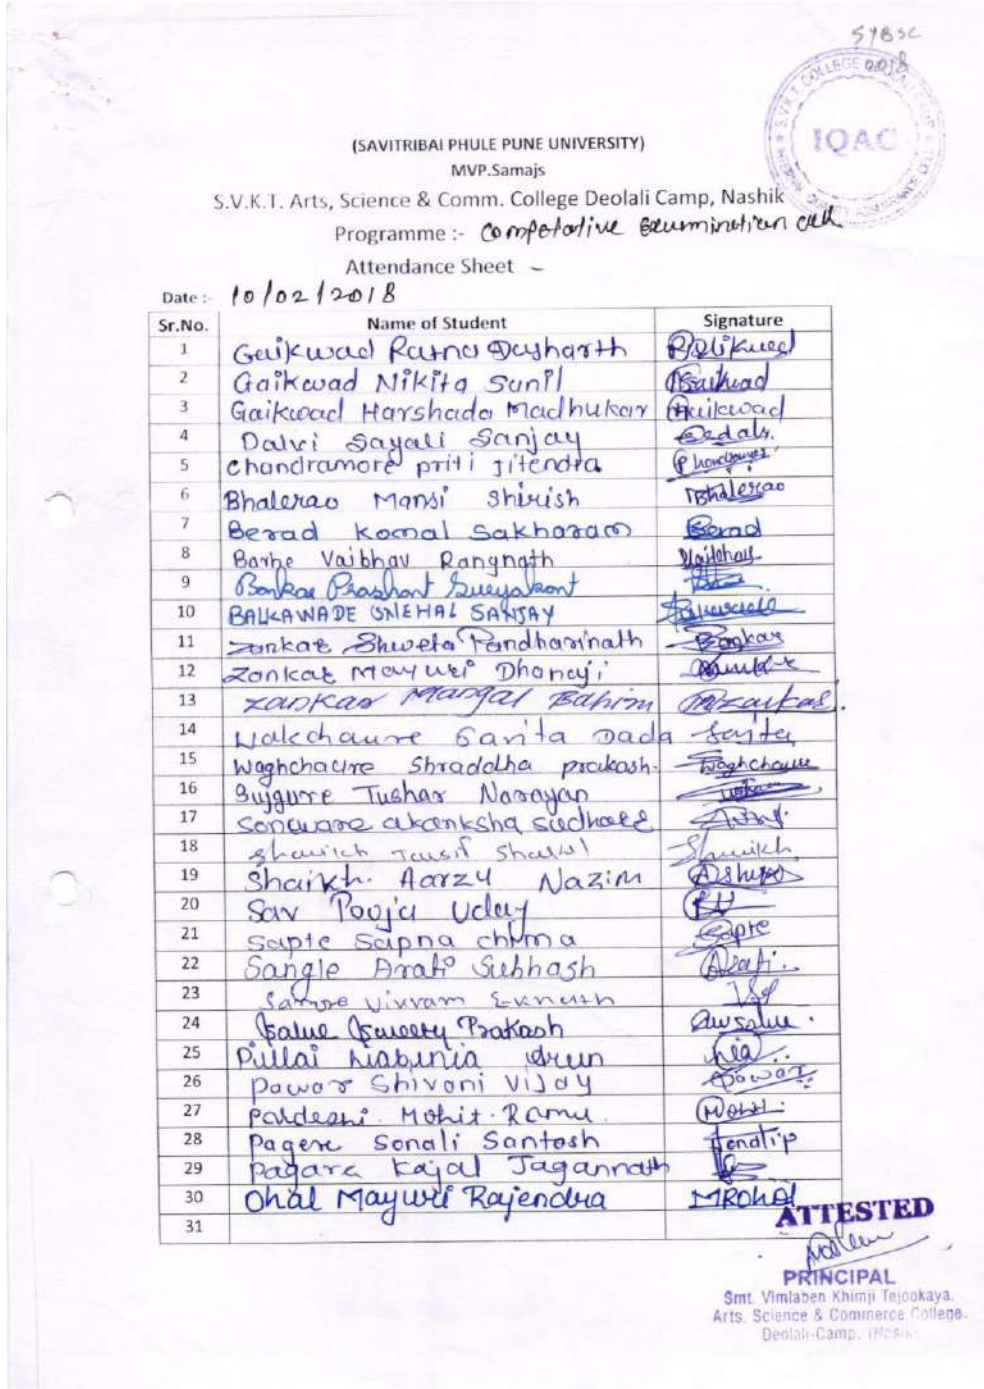 SYBSC
2018
S.V.K.T. COLLEGE DEOLALI CAMP
IQAC
INTERNAL QUALITY ASSURANCE CELL
(SAVITRIBAI PHULE PUNE UNIVERSITY)
MVP.Samajs
S.V.K.T. Arts, Science & Comm. College Deolali Camp, Nashik
Programme :- Competative Examination cell
Attendance Sheet -
Date :- 10/02/2018
Sr.No. Name of Student Signature
1 Gaikwad Ratna Dasharth
2 Gaikwad Nikita Sunil Gaikwad
3 Gaikwad Harshada Madhukar Gaikwad
4 Dalvi Sayali Sanjay
5 Chandramore priti Jitendra
6 Bhalerao Mansi Shirish Bhalerao
7 Berad Komal Sakharam Berad
8 Barhe Vaibhav Rangnath
9 Bankar Prashant Suryakant
10 BALKAWADE SNEHAL SANJAY
11 Zankar Shweta Pandharinath
12 Zankar Mayuri Dhanaji
13 Zankar Mangal Bahiru
14 Wakchaure Sarita Dada Sarita
15 Waghchaure Shraddha prakash Waghchaure
16 Tushar Narayan
17 Sonaware akanksha sudhakar
18 Shaikh Tausif Shaikh
19 Shaikh. Aarzu Nazim
20 Sav Pooja Uday
21 Sapte Sapna chima Sapte
22 Sangle Arati Subhash Arati.
23 Vikram Eknath
24 Salve Sweety Prakash
25 Pillai Arun
26 Pawar Shivani Vijay Pawar
27 Pardeshi. Mohit. Ramu. Mohit
28 Pagere Sonali Santosh
29 Pagare Kajal Jagannath
30 Ohal Mayuri Rajendra MROhal
31
ATTESTED
PRINCIPAL
Smt. Vimlaben Khimji Tejookaya,
Arts, Science & Commerce College.
Deolali-Camp, (Nasik